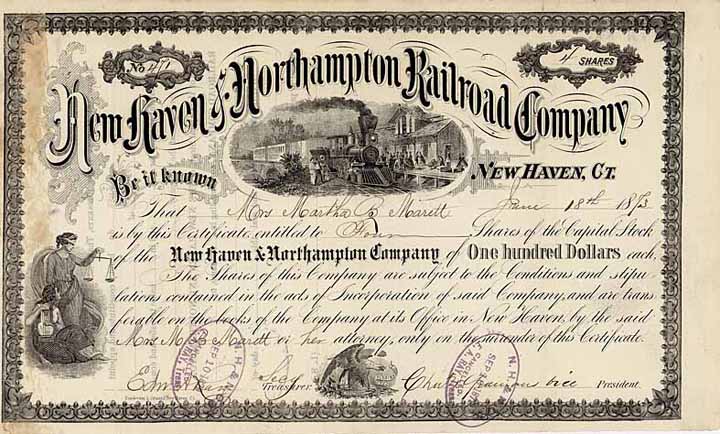 No 471
4 SHARES
New Haven & Northampton Railroad Company
Be it known
NEW HAVEN, CT.
That Mrs Martha B. Marett June 18th 1873
is by this Certificate entitled to Four Shares of the Capital Stock
of the New Haven & Northampton Company of One hundred Dollars each.
The Shares of this Company are subject to the Conditions and stipu
lations contained in the acts of Incorporation of said Company, and are trans
ferable on the books of the Company at its Office in New Haven, by the said
Mrs M. B. Marett or her attorney, only on the surrender of this Certificate.
Secy Treasurer.
Vice President.
N.H. & N. CO.
SEP 10
N.H. &